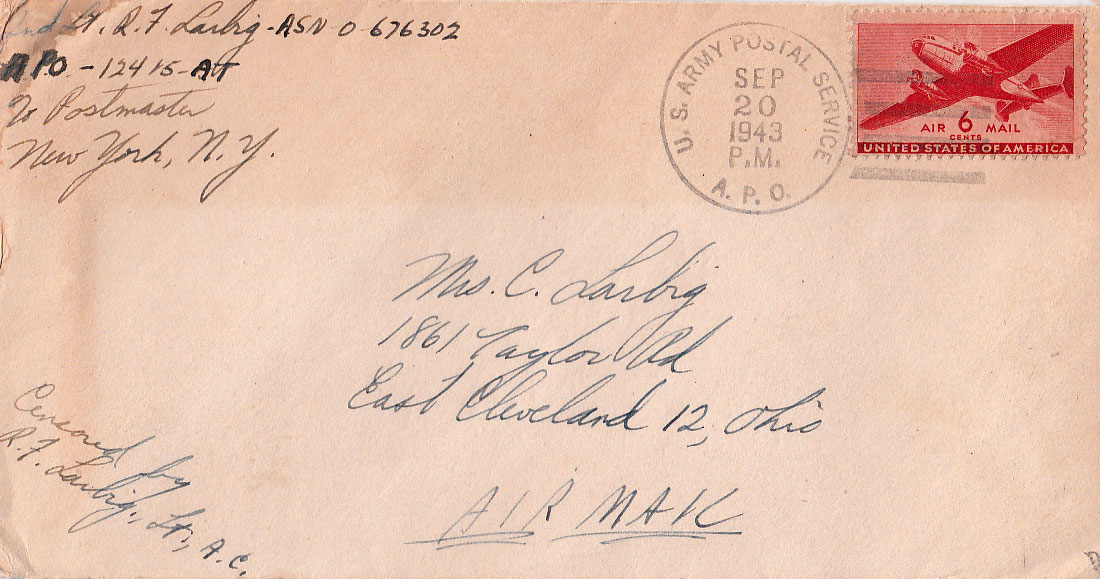 2nd Lt. R. F. Larbig - ASN O-676302
A.P.O. - 12415 - AT
% Postmaster
New York, N.Y.
U. S. ARMY POSTAL SERVICE
SEP
20
1943
P.M.
A. P. O.
AIR 6 MAIL
CENTS
UNITED STATES OF AMERICA
Mrs. C. Larbig
1861 Taylor Rd
East Cleveland 12, Ohio
AIR MAIL
Censored by
R. F. Larbig, Lt., A.C.